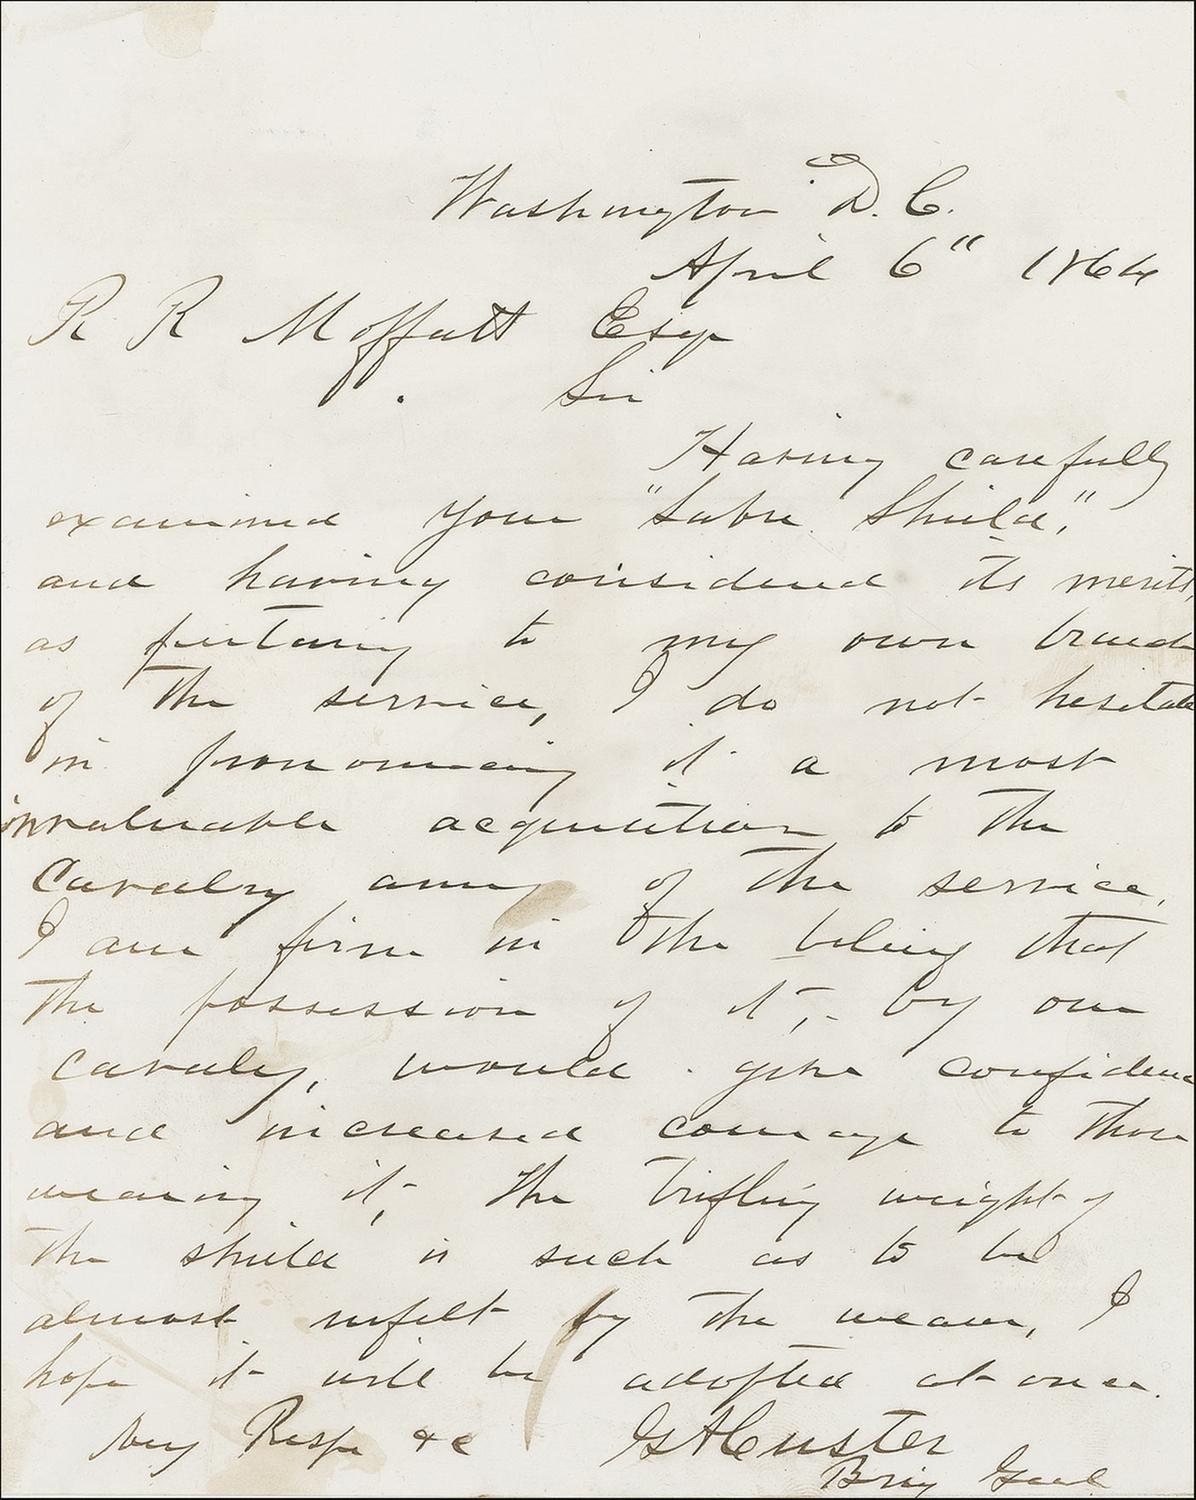 Washington D. C.
April 6" 1864
R R Moffatt Esqr
Sir
Having carefully
examined your "Sabre Shield,"
and having considered its merits,
as pertaining to my own branch
of the service, I do not hesitate
in pronouncing it a most
invaluable acquisition to the
Cavalry army of the service.
I am firm in the belief that
the possession of it, by our
cavalry, would give confidence
and increased courage to those
wearing it, the trifling weight of
the shield is such as to be
almost unfelt by the wearer, I
hope it will be adopted at once.
Very Resp &c GACuster
Brig Genl